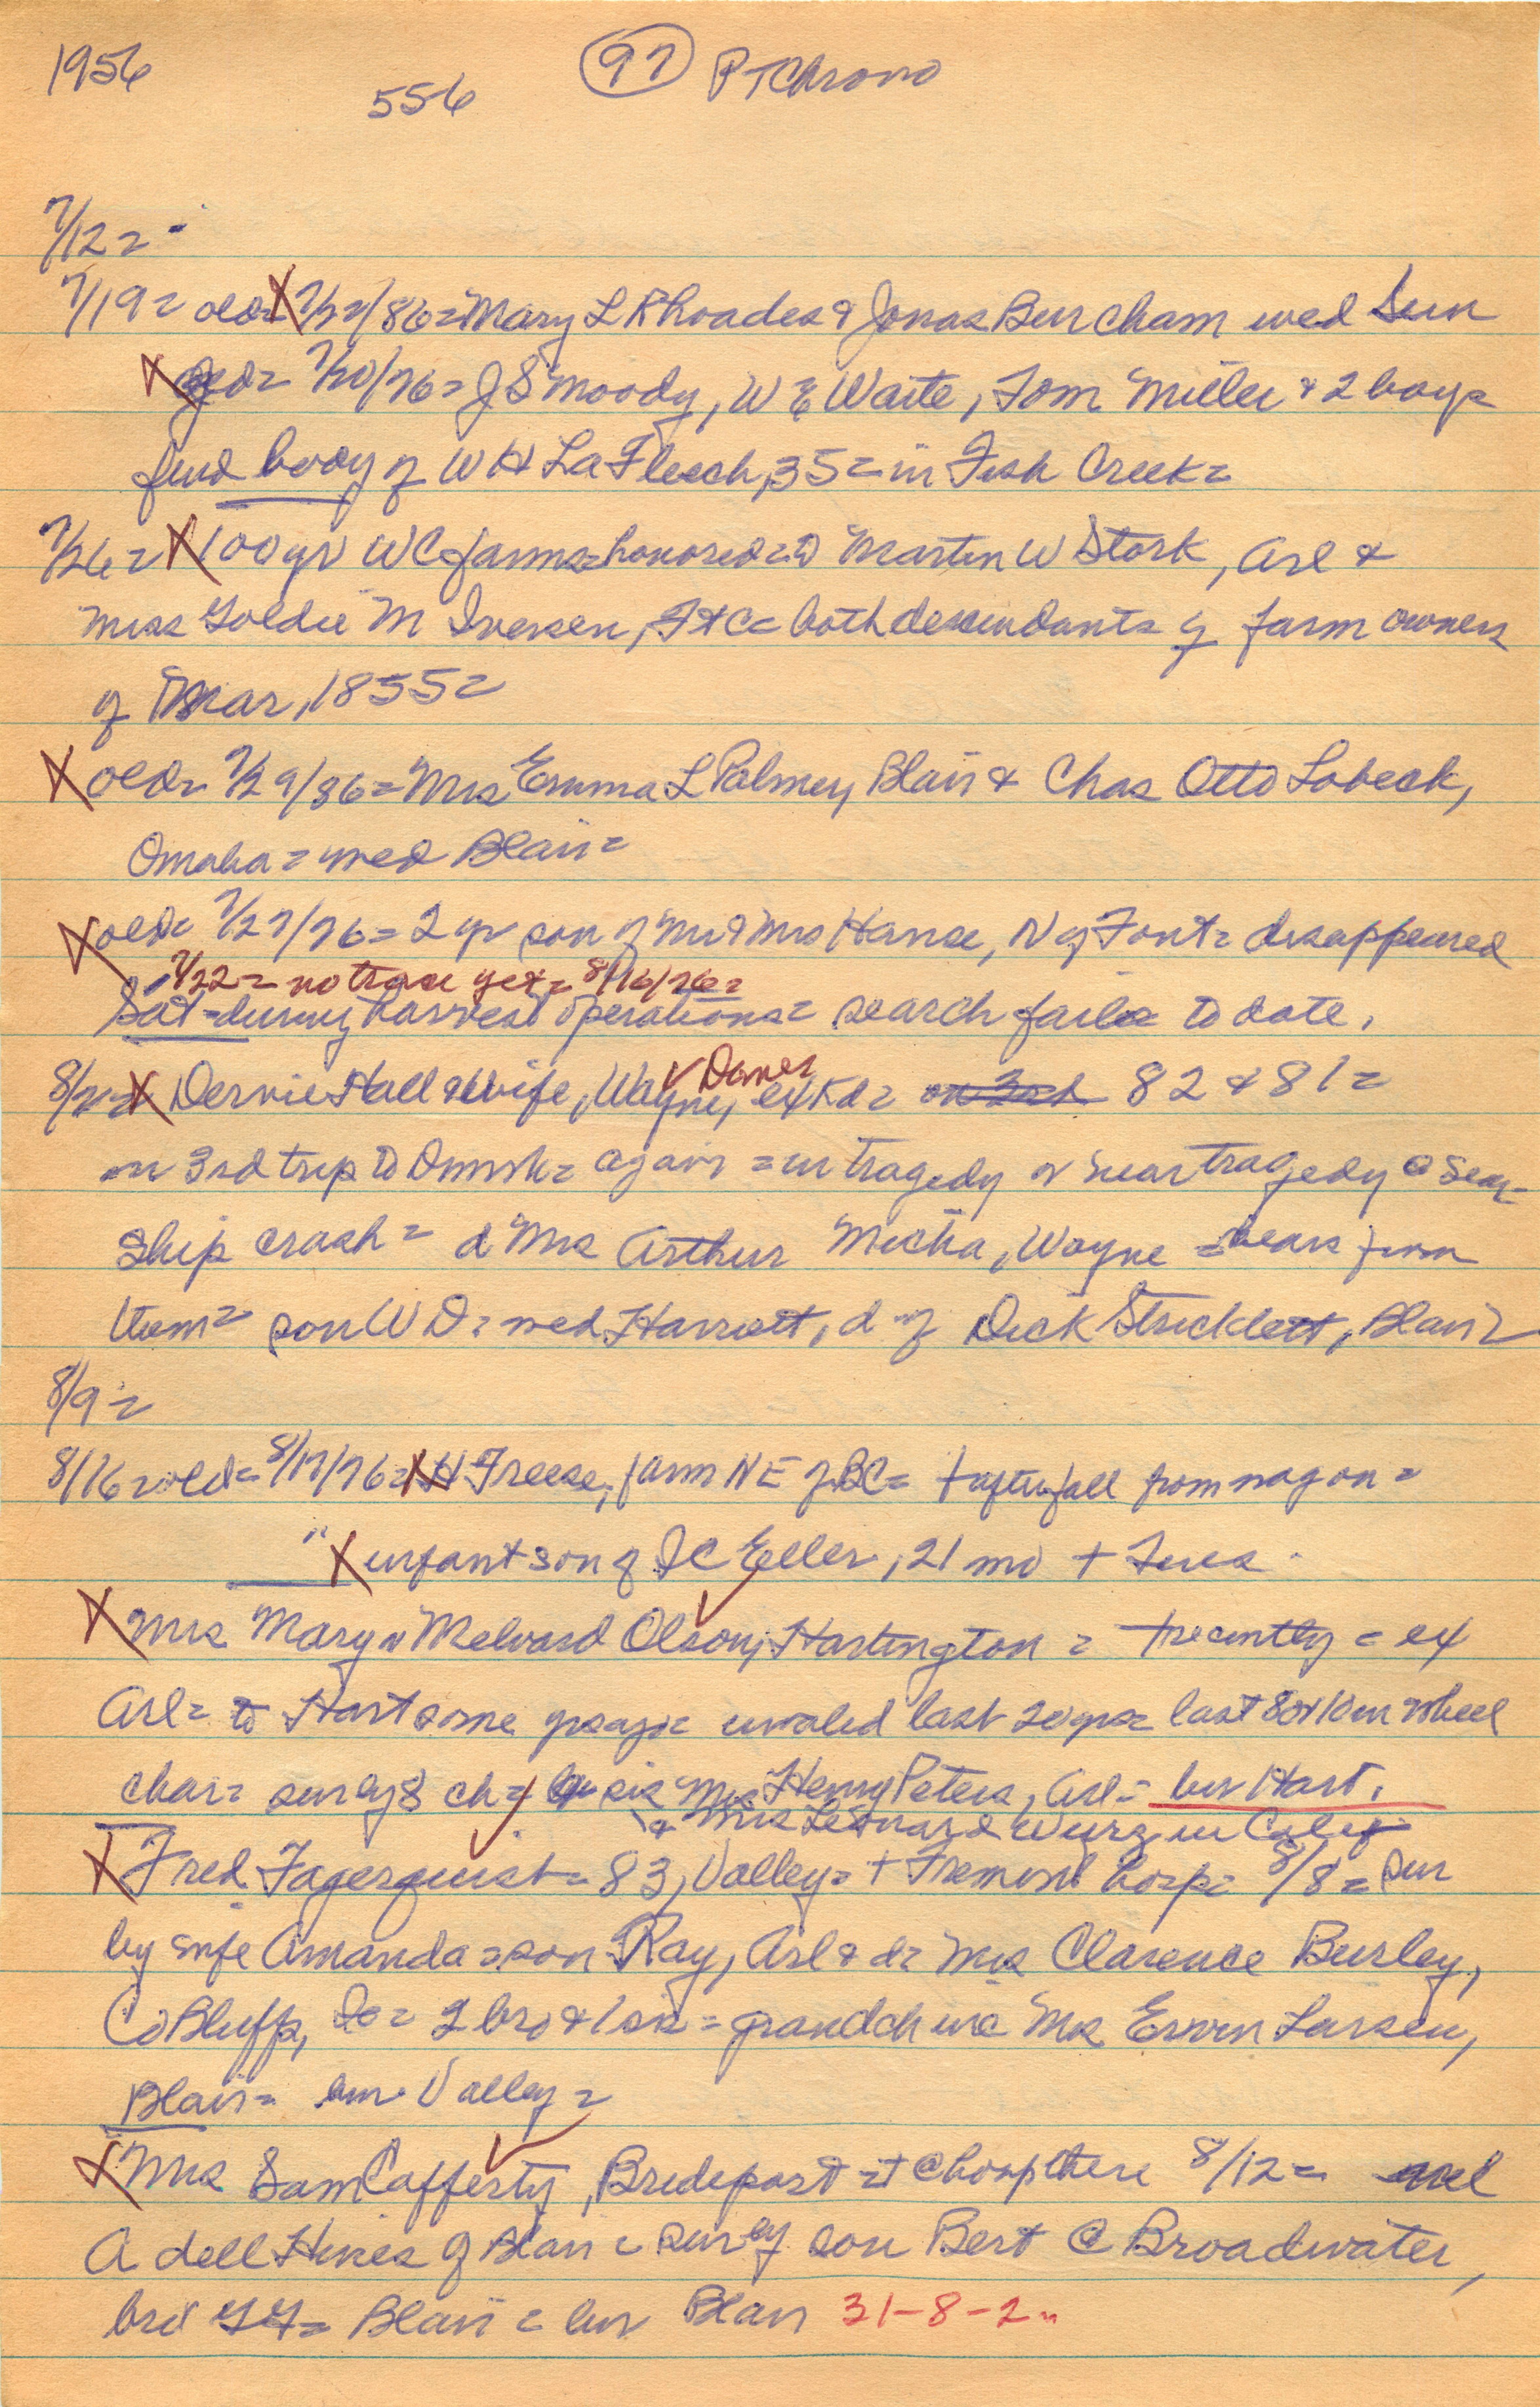 1956
556
97 PTChrono
7/12=
7/19= old= 7/22/86= Mary L Rhoades & Jonas Burcham wed Sun
old= 7/20/76= J S Moody, W E Waite, Tom Miller & 2 boys
find body of W H LaFlesch, 35= in Fish Creek=
7/26= 100 yr WC farms= honored= to Martin W Stork, Arl &
Miss Goldie M Iversen, FtC= both descendants of farm owners
of Mar, 1855=
old= 7/29/86= Mrs Emma L Palmer, Blair & Chas Otto Lobeck,
Omaha= wed Blair=
old= 7/27/76= 2 yr son of Mr & Mrs Hanse, N of Font= disappeared
7/22= no trace yet= 8/16/76=
Sat= during harvest operations= search fails to date.
8/2= Dervie Hall & wife, Wayne, ex Kd= on 3rd 82 & 81=
Danes
on 3rd trip to Dnmrk= again= in tragedy or near tragedy @ sea=
ship crash= d Mrs Arthur Micha, Wayne= hears from
them= son W D= wed Harriett, d of Dick Stricklett, Blair=
8/9=
8/16= old= 8/17/76= H Freese, farm NE of BC= † after fall from wagon=
" infant son of I C Eller, 21 mo † Tues.
Mrs Mary w Melvard Olson, Hartington= † recently= ex
Arl= to Hart some yrs ago= invalid last 20 yrs= last 8 or 10 in wheel
chair= sur by 8 ch= sis Mrs Henry Peters, Arl= bur Hart.
& Mrs Leonard Wurz in Calif
Fred Fagerquist= 83, Valley= † Fremont hosp= 8/8= sur
by wife Amanda= son Ray, Arl & d= Mrs Clarence Burley,
Co Bluffs, Io= 2 bro & 1 sis= grandch inc Mrs Erwin Larsen,
Blair= bur Valley=
Mrs Sam Cafferty, Bridgeport= † @ hosp there 8/12= nee
Adell Hines of Blair= sur by son Bert @ Broadwater,
bro Blair= bur Blair 31-8-2=